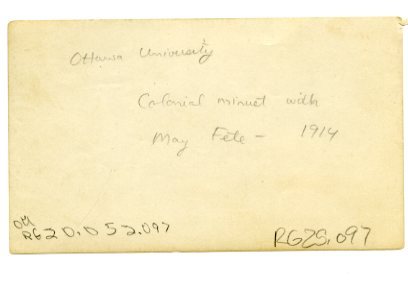 Ottawa University
Colonial minuet with
May Fête - 1914
Old
RG20.052.097
RG25.097